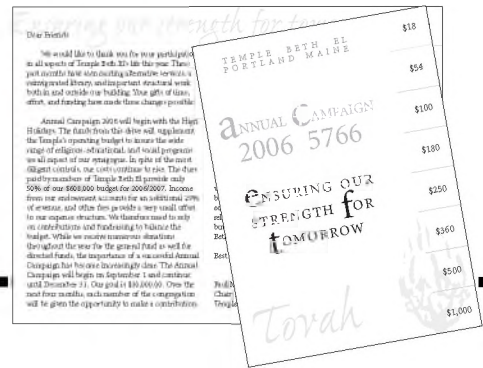 Ensuring our strength for tom
Dear Friends
We would like to thank you for your participation
in all aspects of Temple Beth El's life this year. These
past months have seen exciting alternative services, a
reinvigorated library, and important structural work
both in and outside our building. Your gifts of time,
effort, and funding have made these changes possible.
Annual Campaign 2006 will begin with the High
Holidays. The funds from this drive will supplement
the Temple's operating budget to insure the wide
range of religious, educational, and social programs
we all expect of our synagogue. In spite of the most
diligent controls, our costs continue to rise. The dues
paid by members of Temple Beth El provide only
50% of our $600,000 budget for 2006/2007. Income
from our endowment accounts for an additional 29%
of revenue, and other fees provide a very small offset
to our expense structure. We therefore need to rely
on contributions and fundraising to balance the
budget. While we receive numerous donations
throughout the year for the general fund as well for
directed funds, the importance of a successful Annual
Campaign has become increasingly clear. The Annual
Campaign will begin on September 1 and continue
until December 31. Our goal is
next four months, each member of the congregation
will be given the opportunity to make a contribution.
Best
Chair
Temple
TEMPLE BETH EL
PORTLAND MAINE
ANNUAL CAMPAIGN
2006 5766
ENSURING OUR
STRENGTH for
tOMORROW
Torah
$18
$54
$100
$180
$250
$360
$500
$1,000